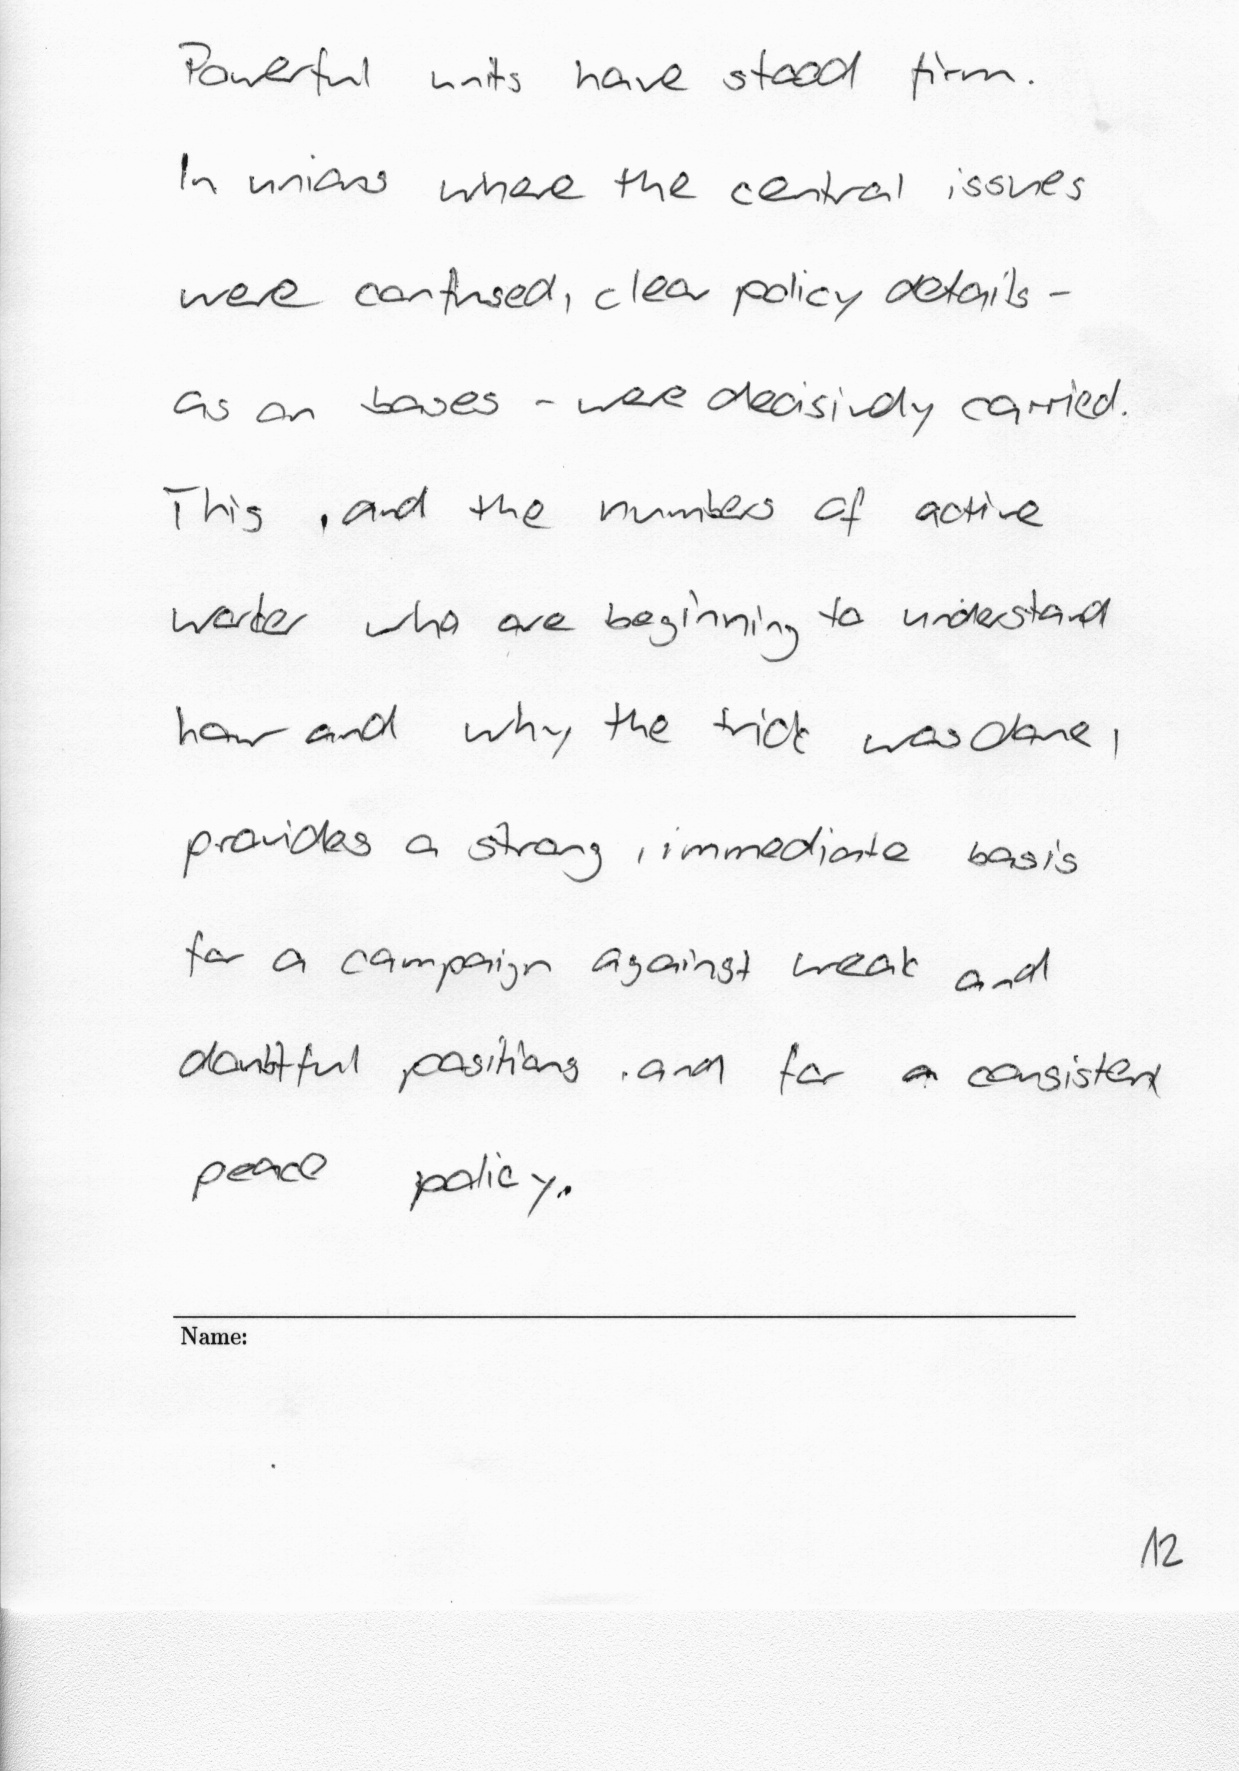 Powerful units have stood firm.
In unions where the central issues
were confused, clear policy details -
as on bases - were decisively carried.
This, and the numbers of active
worker who are beginning to understand
how and why the trick was done,
provides a strong, immediate basis
for a campaign against weak and
doubtful positions, and for a consistent
peace policy.
Name:
12